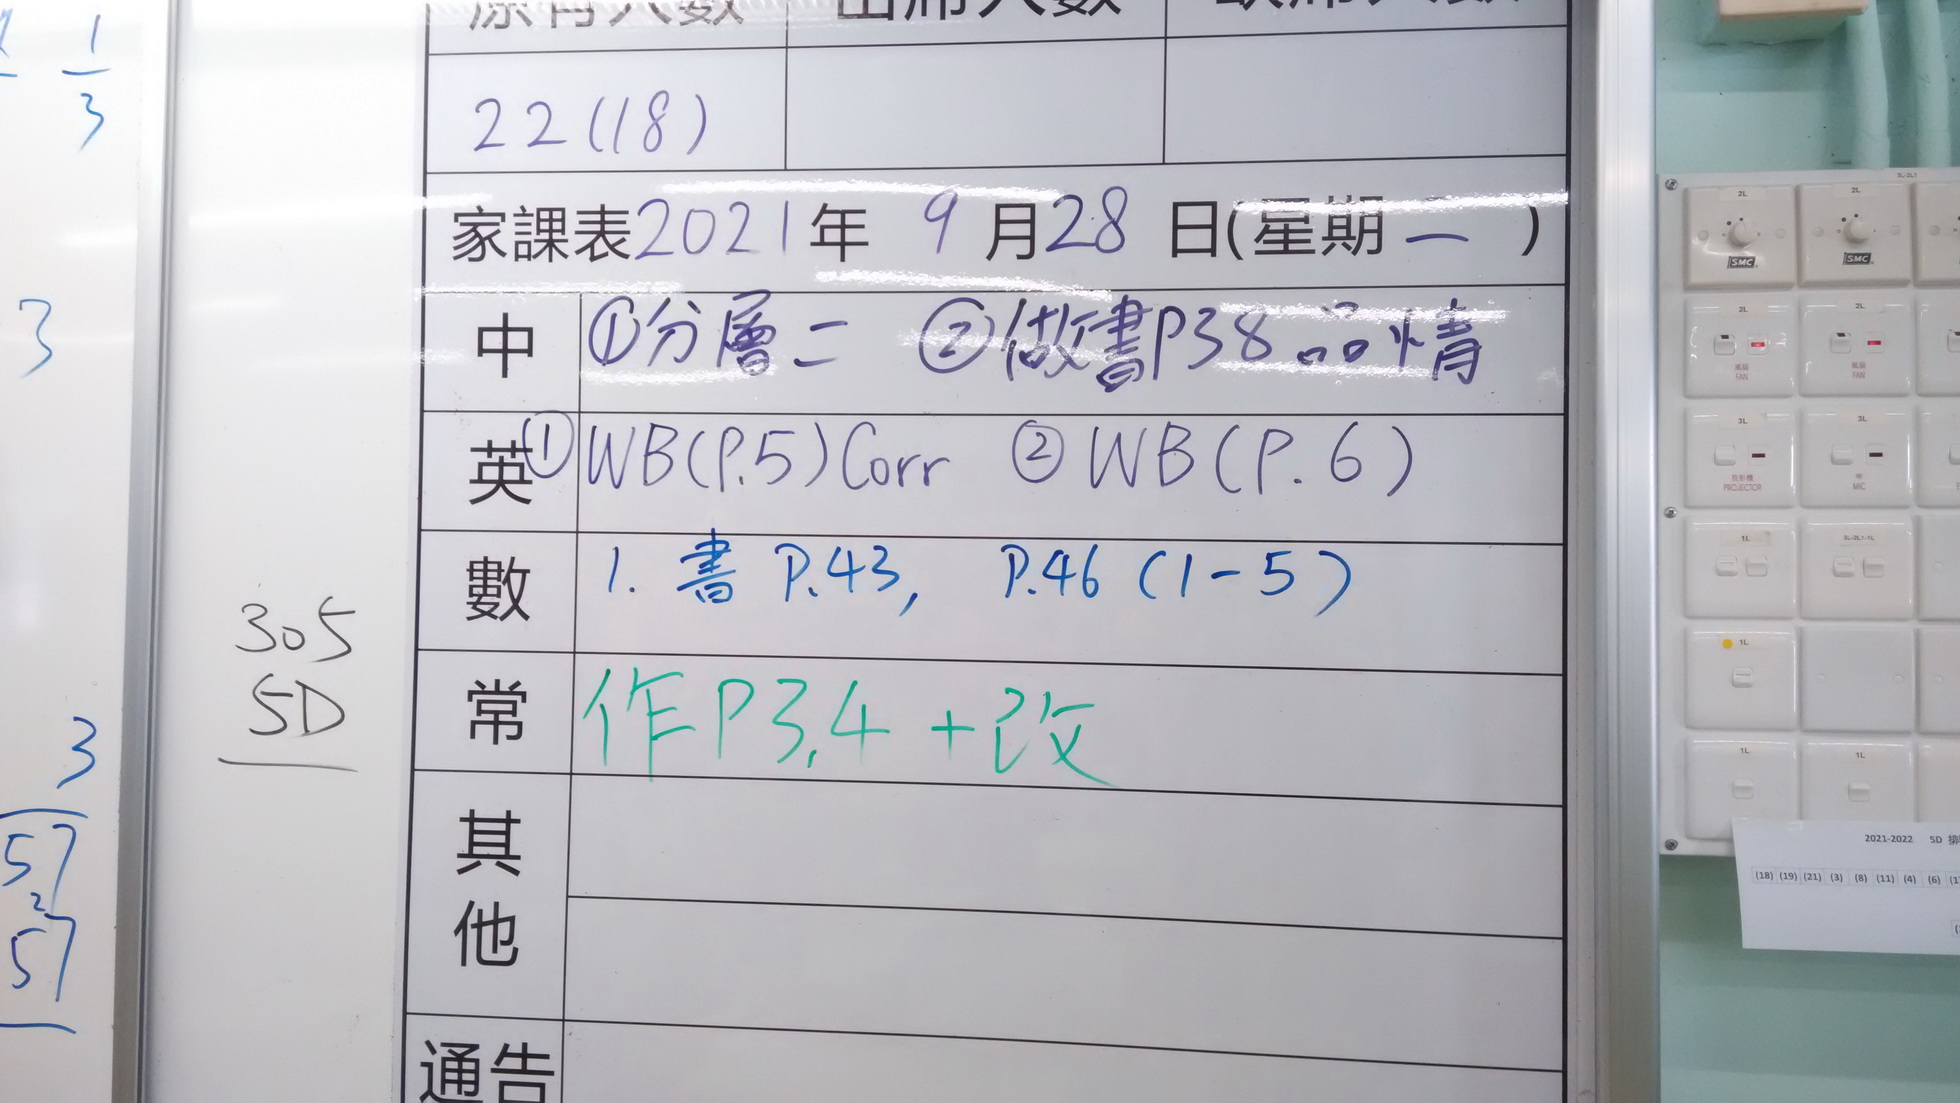 1
3
3
3
57
2
57
305
5D
原有人數 出席人數
22(18)
家課表2021年 9月28日(星期一)
中 ①分層二 ②做書P38品情
英 ①WB(P.5)Corr ②WB(P.6)
數 1. 書 P.43, P.46 (1-5)
常 作P3,4+改
其他
通告
5L-2L1
2L 2L
SMC SMC
2L 2L
風扇 風扇
FAN FAN
3L 3L
投影機 咪
PROJECTOR MIC
1L
1L
1L 1L
2021-2022 5D
(18) (19) (21) (3) (8) (11) (4) (6)